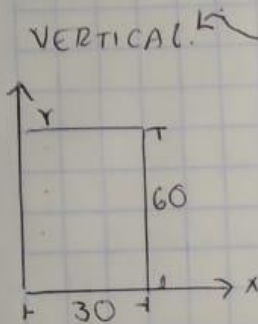 VERTICAL.
Y
60
X
30